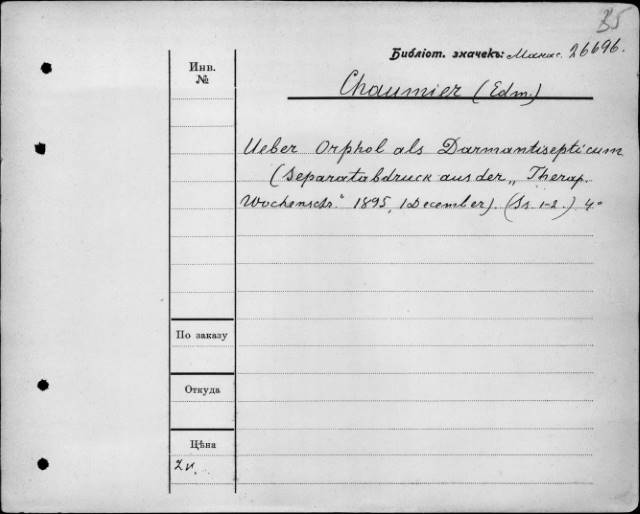 35
Библіот. значекъ: Манас. 26696.
Инв.
№
Chaumier (Edm.)
Ueber Orphol als Darmantisepticum
(Separatabdruck aus der „Therap.
Wochenschr." 1895, 1 December). (Ss. 1-2.) 4°
По заказу
Откуда
Цѣна